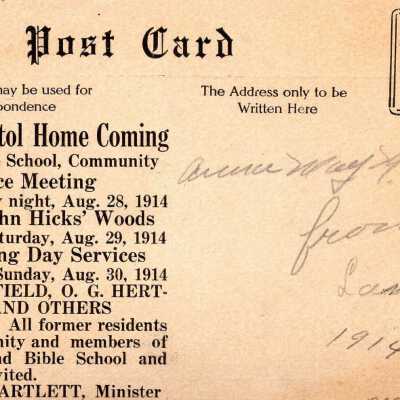 Post Card
may be used for
pondence
The Address only to be
Written Here
tol Home Coming
School, Community
ce Meeting
y night, Aug. 28, 1914
hn Hicks' Woods
turday, Aug. 29, 1914
ng Day Services
Sunday, Aug. 30, 1914
FIELD, O. G. HERT-
AND OTHERS
All former residents
unity and members of
nd Bible School and
vited.
ARTLETT, Minister
May
from
1914